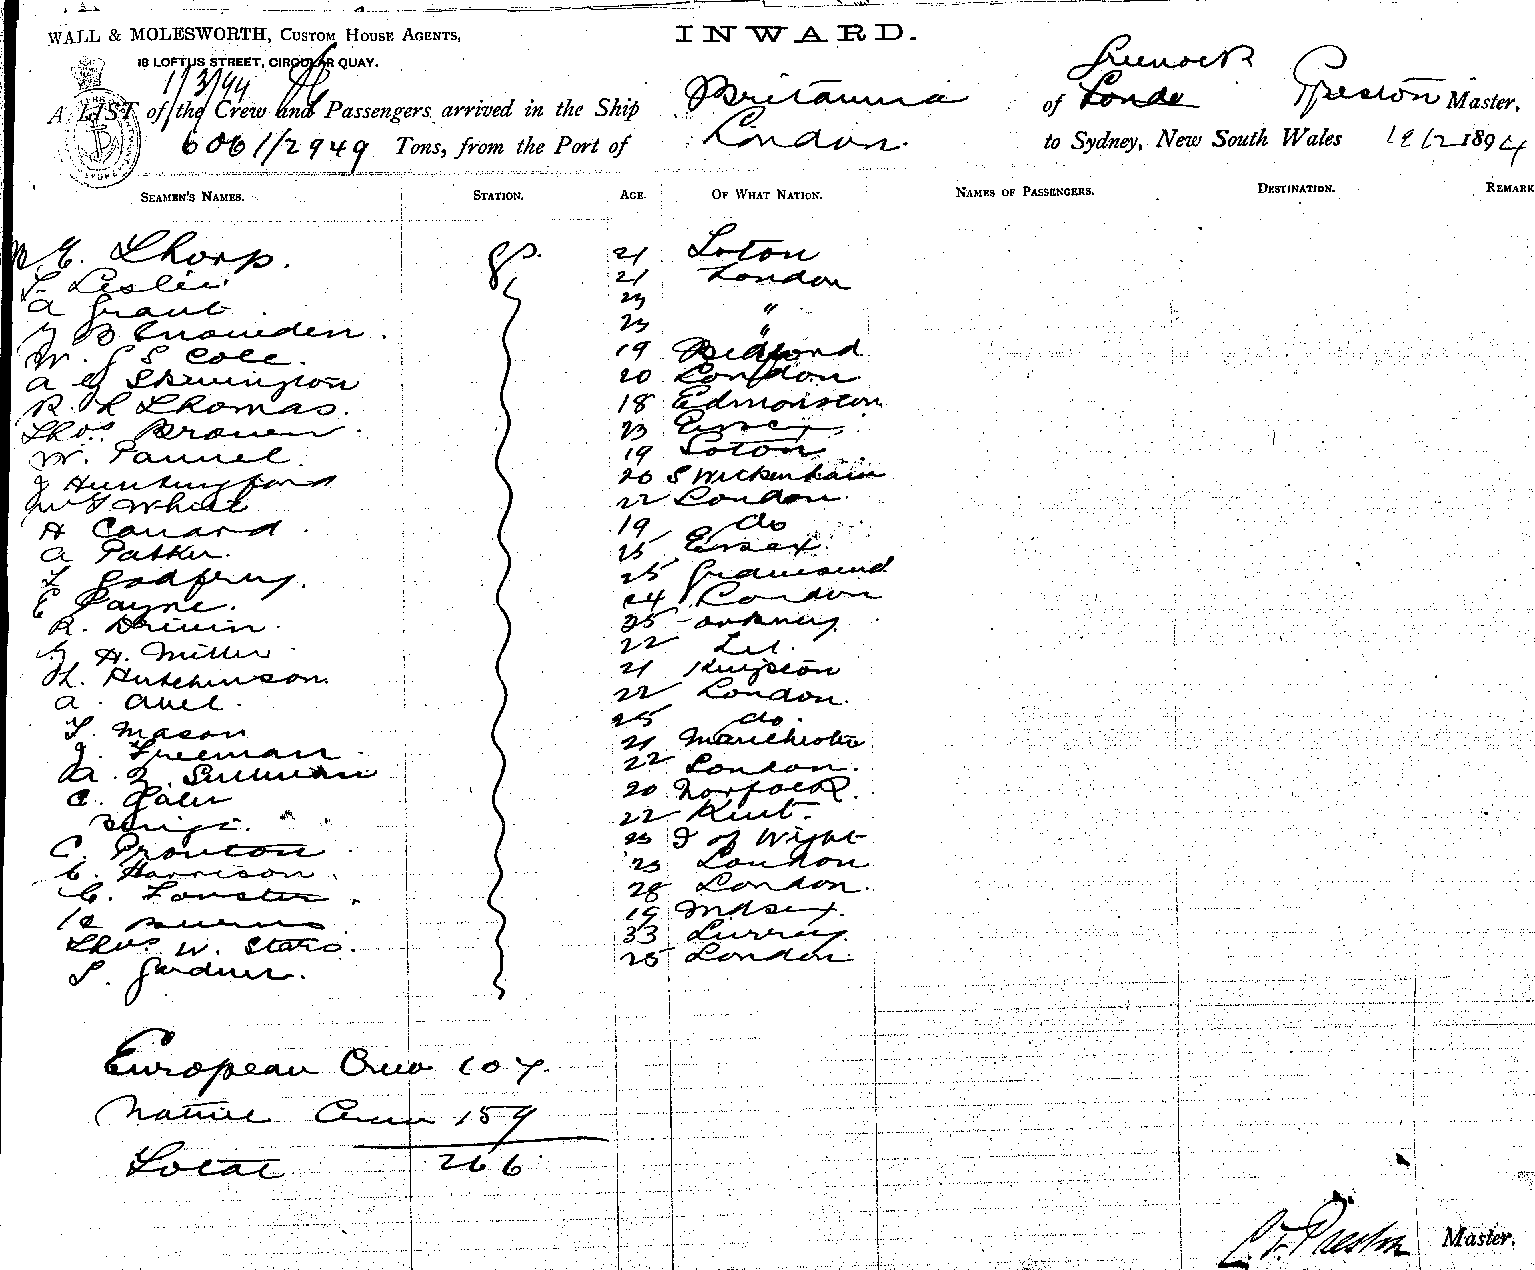 WALL & MOLESWORTH, CUSTOM HOUSE AGENTS,
INWARD.
18 LOFTUS STREET, CIRCULAR QUAY.
1/3/94
Greenock
A LIST of the Crew and Passengers arrived in the Ship Britannia of Londo Preston Master,
6061/2949 Tons, from the Port of London. to Sydney, New South Wales 1894
SEAMEN'S NAMES. STATION. AGE. OF WHAT NATION. NAMES OF PASSENGERS. DESTINATION. REMARK
Thorp. gs. 21 Soton
Leslie 21 London
A Grant 23 "
B Snowden. 23 "
W. G S Cole. 19 Bedford
A G Skevington 20 London
R. L Thomas. 18 Edmonston
Thos. Brown 23 Essex
W. Pannel. 19 Soton
J Huntingford 20 Twickenham
White 22 London
H Conard 19 do
A Parker. 25 Essex.
Godfrey. 25 Gravesend
E Payne. 24 London
R. Driver. 25 Orkney
G H. Miller 22
H. Hutchinson. 21 Kingston
A. Abel. 22 London.
T. Mason 25 do.
J. Freeman 21 Manchester
22 London.
C. 20 Norfolk.
22 Kent.
C. Prouton 23 I of Wight
C. Harrison. 23 London
C. 28 London.
19 Mdsex.
Thos. W. 33 Surrey.
S. Gardner. 25 London.
European Crew 107.
Native Crew 159
Total 266
C. F. Preston Master.